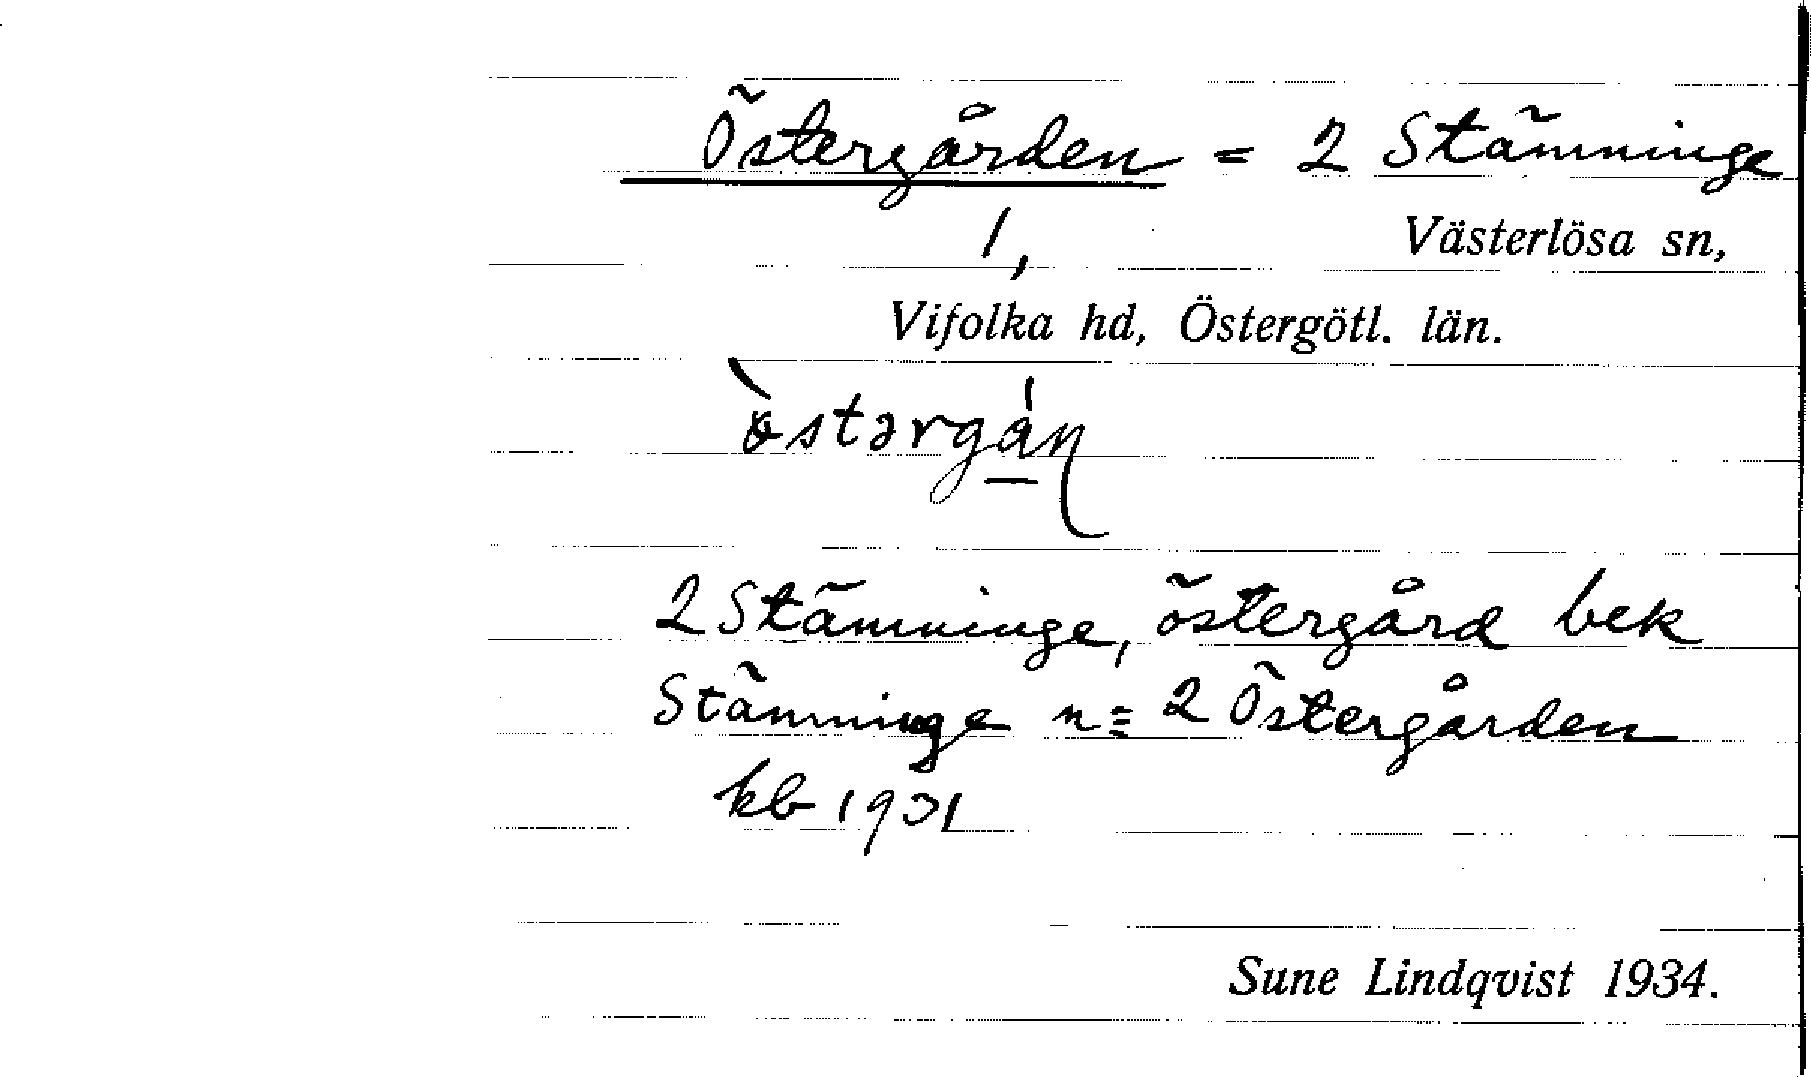 Östergården = 2 Stämninge
1,
Västerlösa sn,
Vifolka hd, Östergötl. län.
2 Stämninge, östergård bek
Stämninge n = 2 Östergården
kb 1931
Sune Lindqvist 1934.